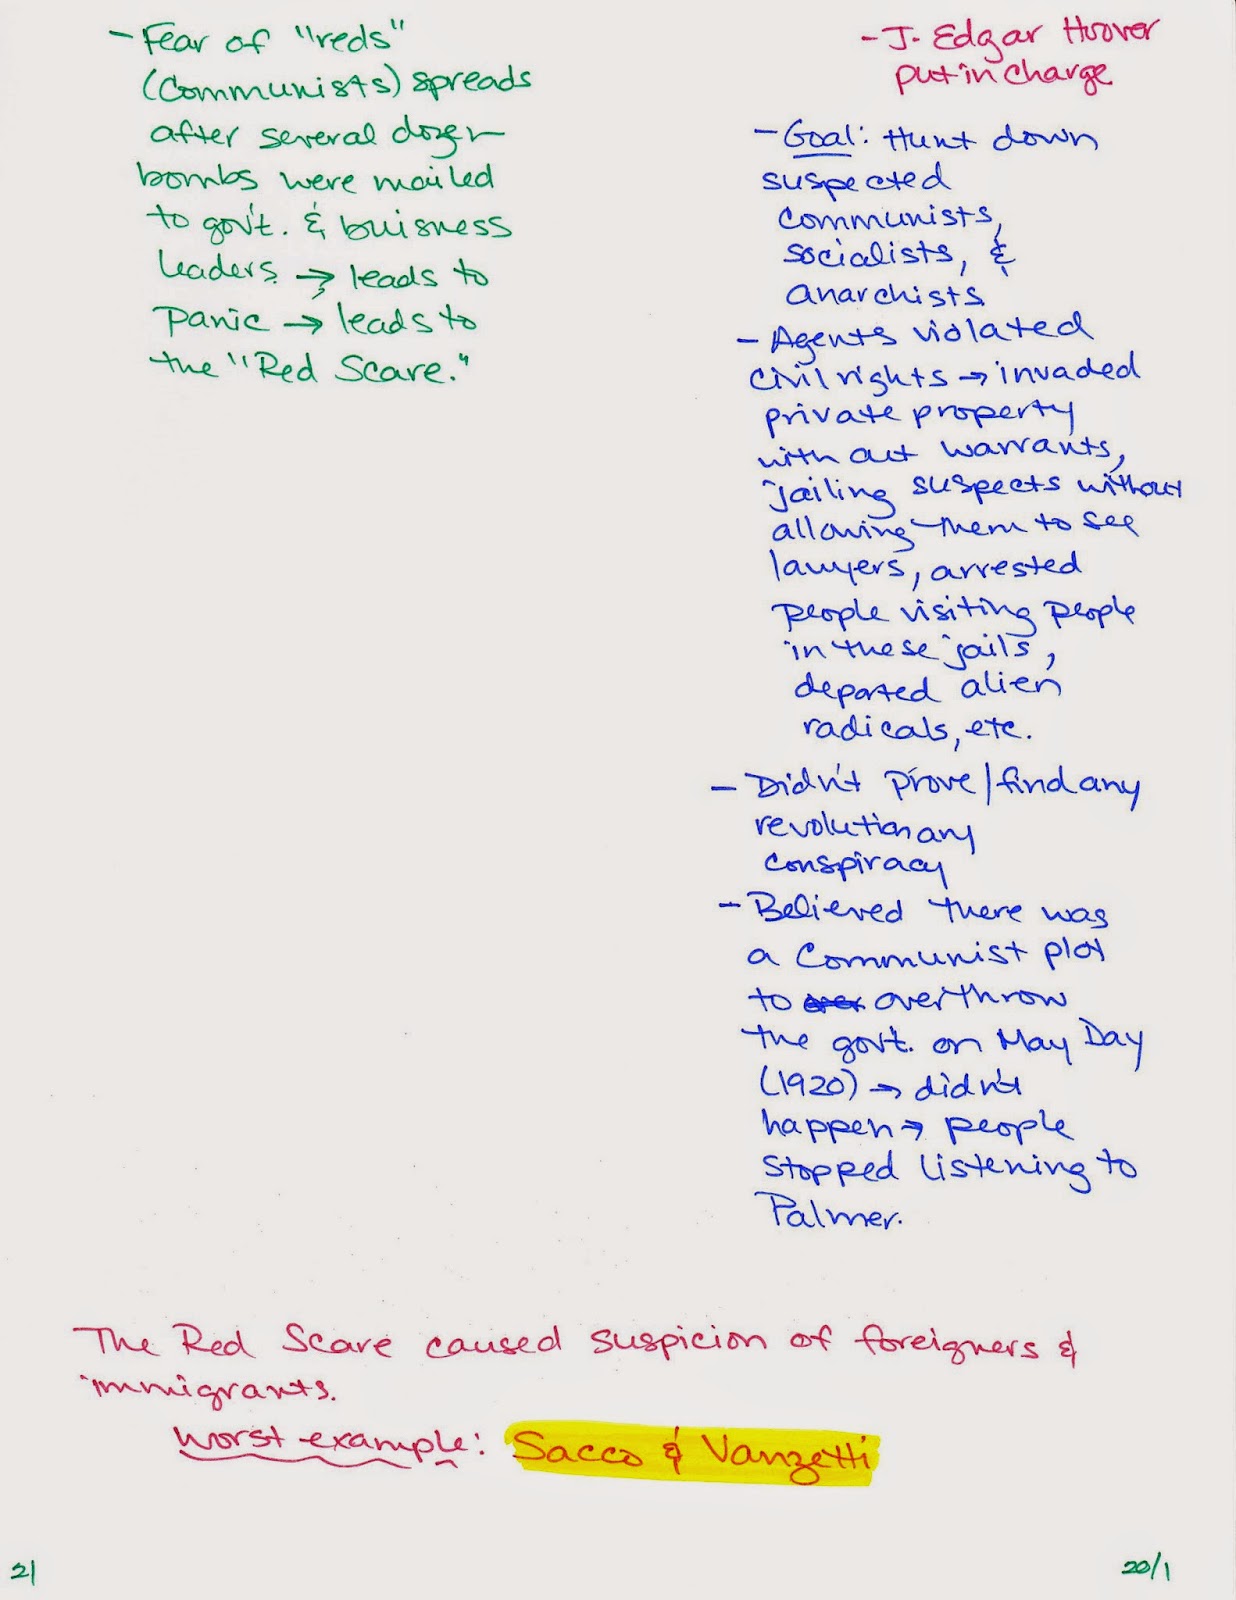 - Fear of "reds"
(Communists) spreads
after several dozen
bombs were mailed
to gov't. & buisness
leaders → leads to
panic → leads to
the "Red Scare."
- J. Edgar Hoover
put in charge
- Goal: Hunt down
suspected
communists,
socialists, &
anarchists
- Agents violated
civil rights → invaded
private property
with out warrants,
jailing suspects without
allowing them to see
lawyers, arrested
people visiting people
in these jails,
deported alien
radicals, etc.
- Didn't prove/find any
revolutionary
conspiracy
- Believed there was
a Communist plot
to overthrow
the gov't. on May Day
(1920) → didn't
happen → people
stopped listening to
Palmer.
The Red Scare caused suspicion of foreigners &
immigrants.
worst example: Sacco & Vanzetti
21
20/1